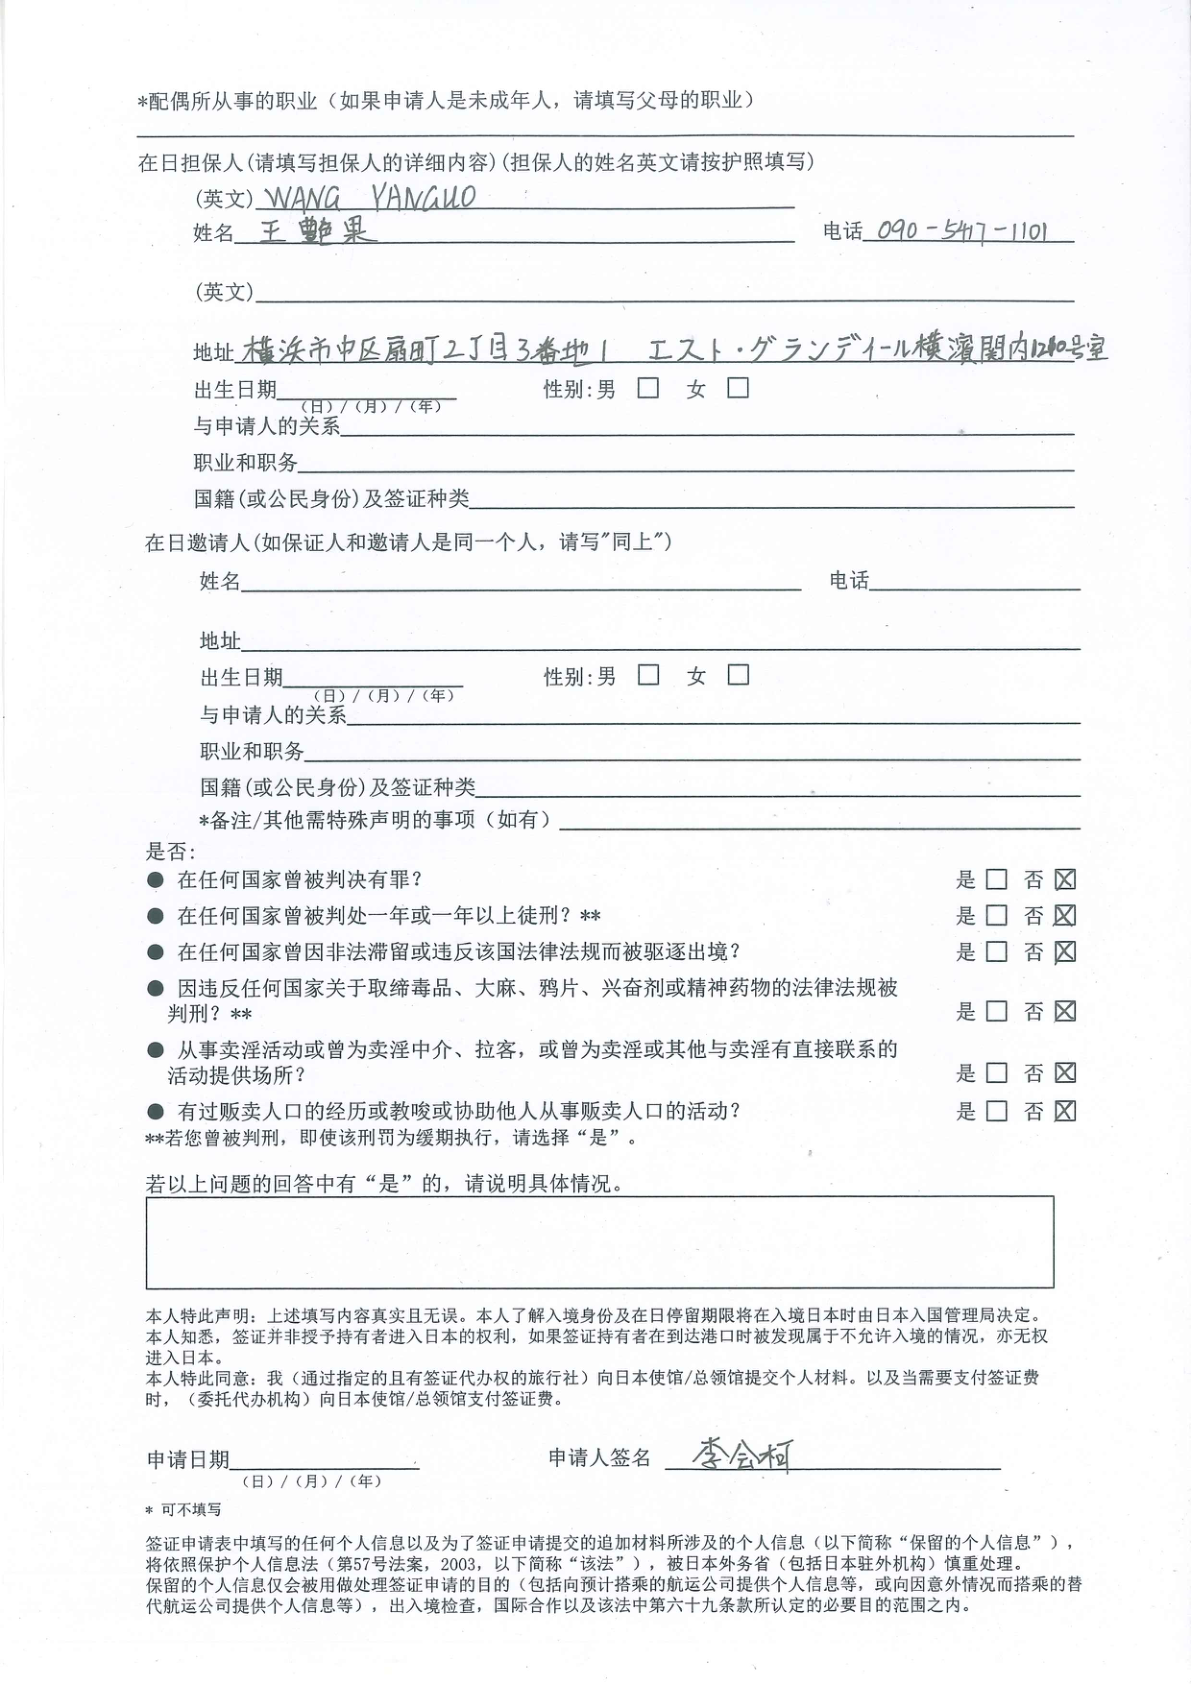 *配偶所从事的职业（如果申请人是未成年人，请填写父母的职业）
在日担保人(请填写担保人的详细内容)(担保人的姓名英文请按护照填写)
(英文) WANG YANGUO
姓名 王艷果 电话 090-5417-1101
(英文)
地址 横浜市中区扇町2丁目3番地1 エスト・グランディール横濱関内1210号室
出生日期 性别:男 □ 女 □
(日)/(月)/(年)
与申请人的关系
职业和职务
国籍(或公民身份)及签证种类
在日邀请人(如保证人和邀请人是同一个人，请写"同上")
姓名 电话
地址
出生日期 性别:男 □ 女 □
(日)/(月)/(年)
与申请人的关系
职业和职务
国籍(或公民身份)及签证种类
*备注/其他需特殊声明的事项（如有）
是否:
● 在任何国家曾被判决有罪？ 是 □ 否 ☒
● 在任何国家曾被判处一年或一年以上徒刑？** 是 □ 否 ☒
● 在任何国家曾因非法滞留或违反该国法律法规而被驱逐出境？ 是 □ 否 ☒
● 因违反任何国家关于取缔毒品、大麻、鸦片、兴奋剂或精神药物的法律法规被
判刑？** 是 □ 否 ☒
● 从事卖淫活动或曾为卖淫中介、拉客，或曾为卖淫或其他与卖淫有直接联系的
活动提供场所？ 是 □ 否 ☒
● 有过贩卖人口的经历或教唆或协助他人从事贩卖人口的活动？ 是 □ 否 ☒
**若您曾被判刑，即使该刑罚为缓期执行，请选择“是”。
若以上问题的回答中有“是”的，请说明具体情况。
本人特此声明：上述填写内容真实且无误。本人了解入境身份及在日停留期限将在入境日本时由日本入国管理局决定。
本人知悉，签证并非授予持有者进入日本的权利，如果签证持有者在到达港口时被发现属于不允许入境的情况，亦无权
进入日本。
本人特此同意：我（通过指定的且有签证代办权的旅行社）向日本使馆/总领馆提交个人材料。以及当需要支付签证费
时，（委托代办机构）向日本使馆/总领馆支付签证费。
申请日期 申请人签名 李会柯
(日)/(月)/(年)
* 可不填写
签证申请表中填写的任何个人信息以及为了签证申请提交的追加材料所涉及的个人信息（以下简称“保留的个人信息”），
将依照保护个人信息法（第57号法案，2003，以下简称“该法”），被日本外务省（包括日本驻外机构）慎重处理。
保留的个人信息仅会被用做处理签证申请的目的（包括向预计搭乘的航运公司提供个人信息等，或向因意外情况而搭乘的替
代航运公司提供个人信息等），出入境检查，国际合作以及该法中第六十九条款所认定的必要目的范围之内。